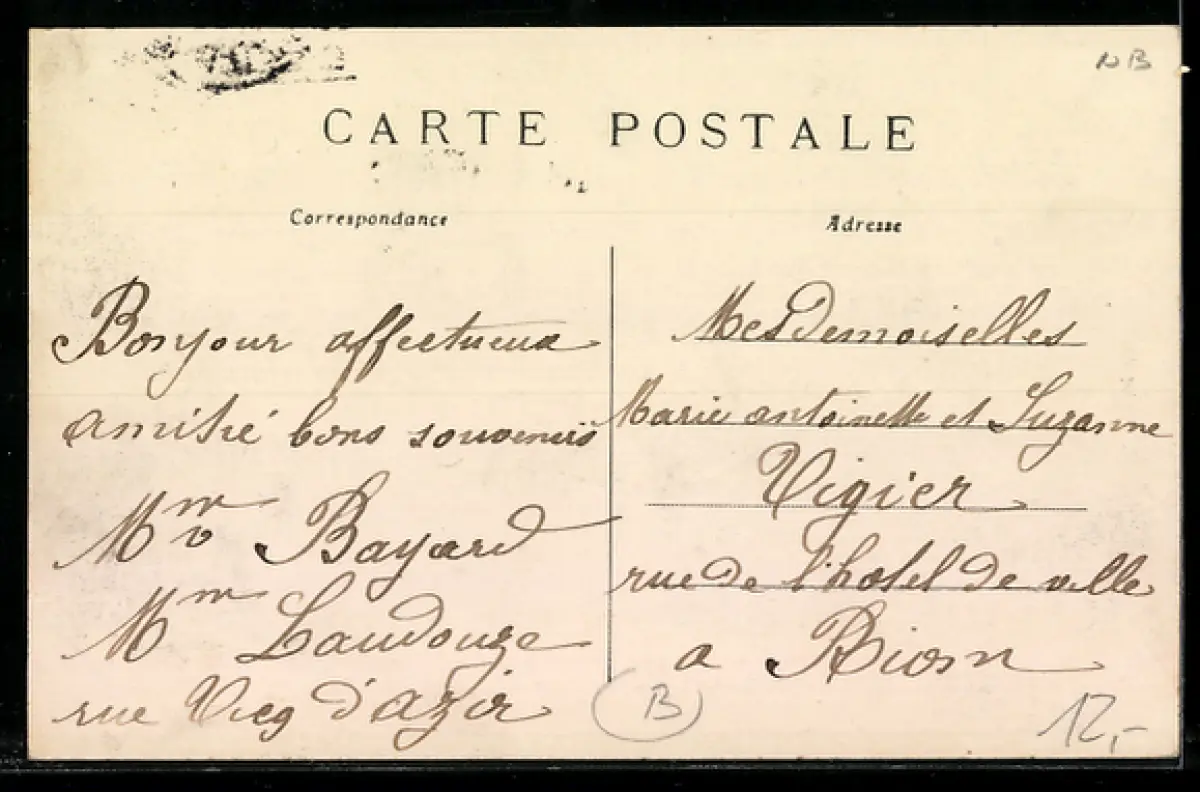 NB
CARTE POSTALE
Correspondance
Adresse
Bonjour affectueux
amitié bons souvenirs
Mme Vve Bayard
Mme Laudouze
rue Vicq d'azir
MesDemoiselles
Marie antoinette et Suzanne
Vigier
rue de l'hotel de ville
a Riom
B
12,-